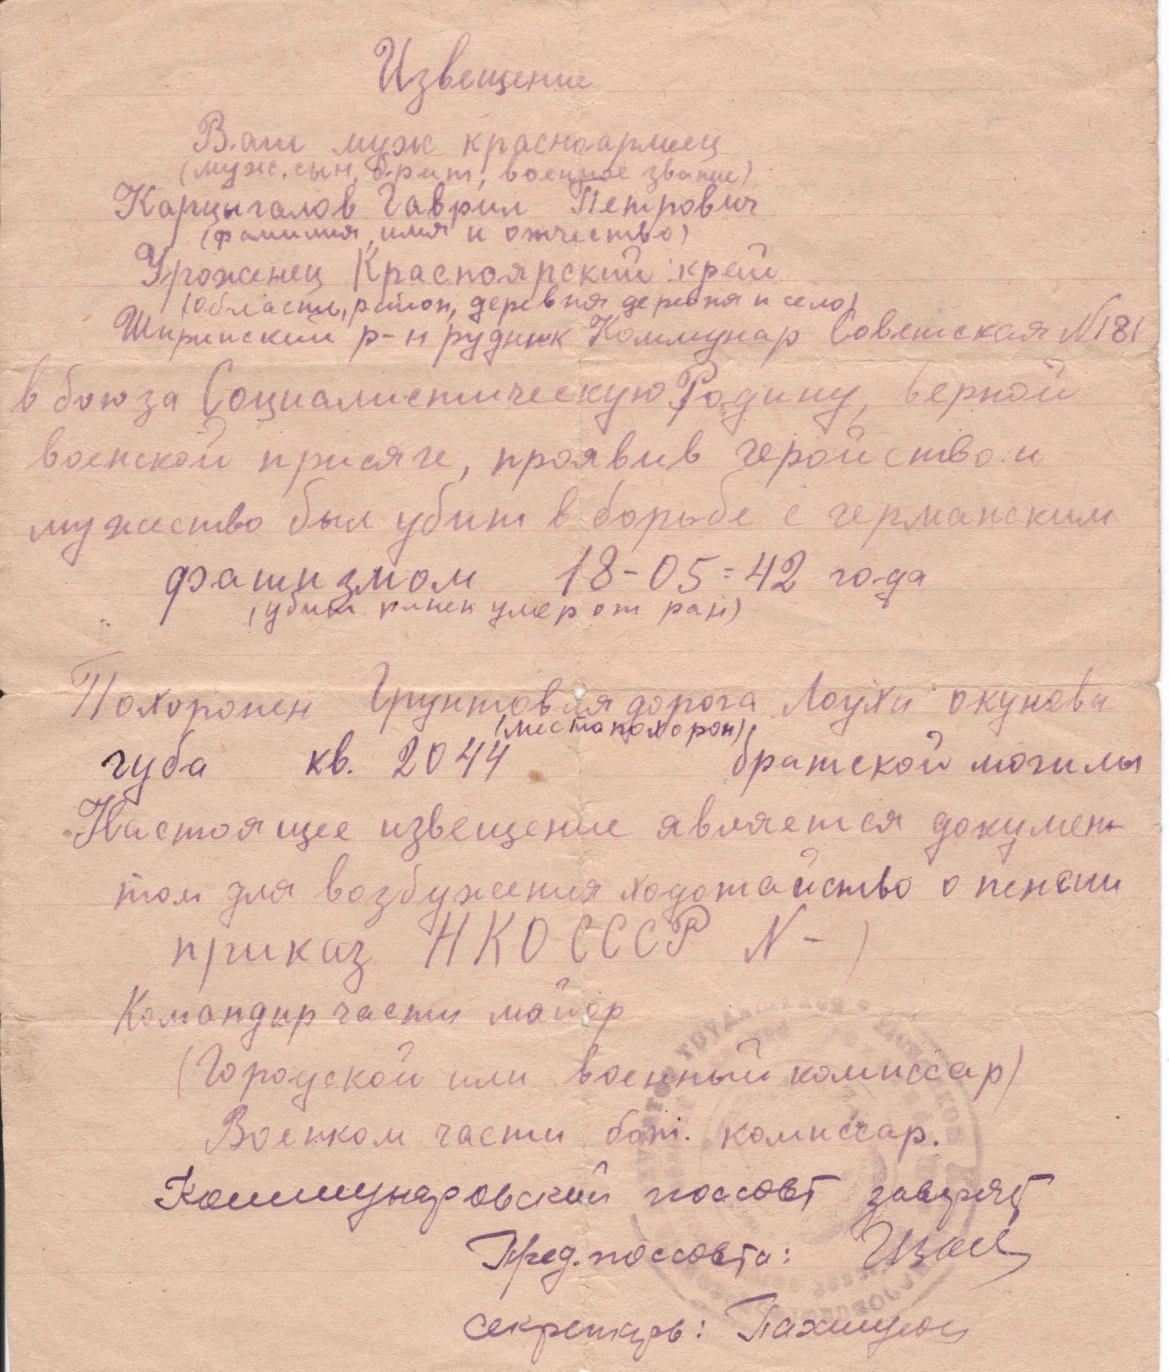 Извещение
Ваш муж красноармеец
(муж, сын, брат, военное звание)
Карцыгалов Гаврил Петрович
(фамилия, имя и отчество)
Уроженец Красноярский край
(область, район, деревня деревня и село)
Ширинский р-н рудник Коммунар Советская №181
в бою за Социалистическую Родину, верной
военской присяге, проявив геройство и
мужество был убит в борьбе с германским
фашизмом 18-05-42 года
(убит ранен умер от ран)
Похоронен Грунтовая дорога Лоухи окунева
(место похорон)
губа кв. 2044 братской могилы
Настоящее извещение является докумен-
том для возбуждения ходотайство о пенсии
приказ НКО СССР № - )
Командир части майор
(Городской или военный комиссар)
Военком части бат. комиссар.
Коммунаровский поссовт заверяет
Пред. поссовта:
секретарь: